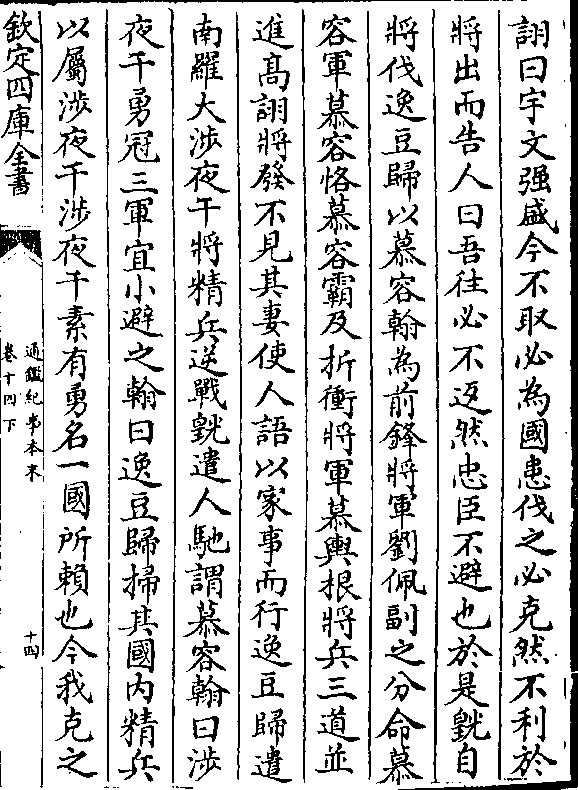 詡曰宇文强盛今不取必為國患伐之必克然不利於
將出而告人曰吾往必不返然忠臣不避也於是皝自
將伐逸豆歸以慕容翰為前鋒將軍劉佩副之分命慕
容軍慕容恪慕容霸及折衝將軍慕輿根將兵三道並
進髙詡將發不見其妻使人語以家事而行逸豆歸遣
南羅大涉夜干將精兵逆戰皝遣人馳謂慕容翰曰涉
夜干勇冠三軍宜小避之翰曰逸豆歸掃其國内精兵
以屬涉夜干涉夜干素有勇名一國所賴也今我克之
欽定四庫全書
通鑑紀事本末
卷十四下
十四